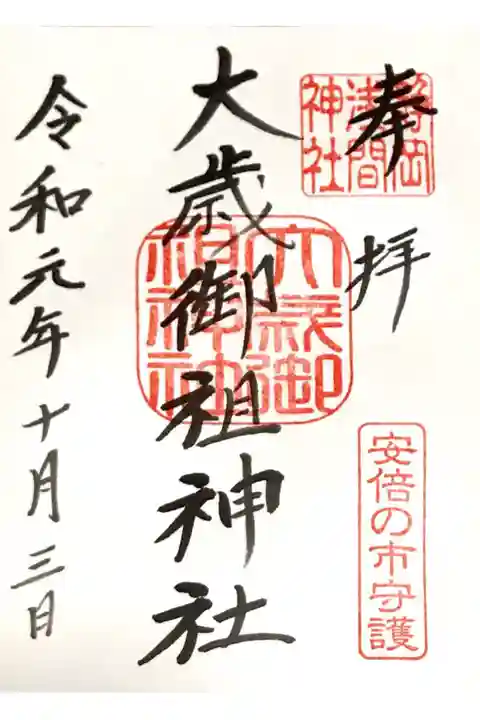 奉拝
静岡浅間神社
安倍の市守護
大歳御祖神社
大歳御祖神社
令和元年十月三日